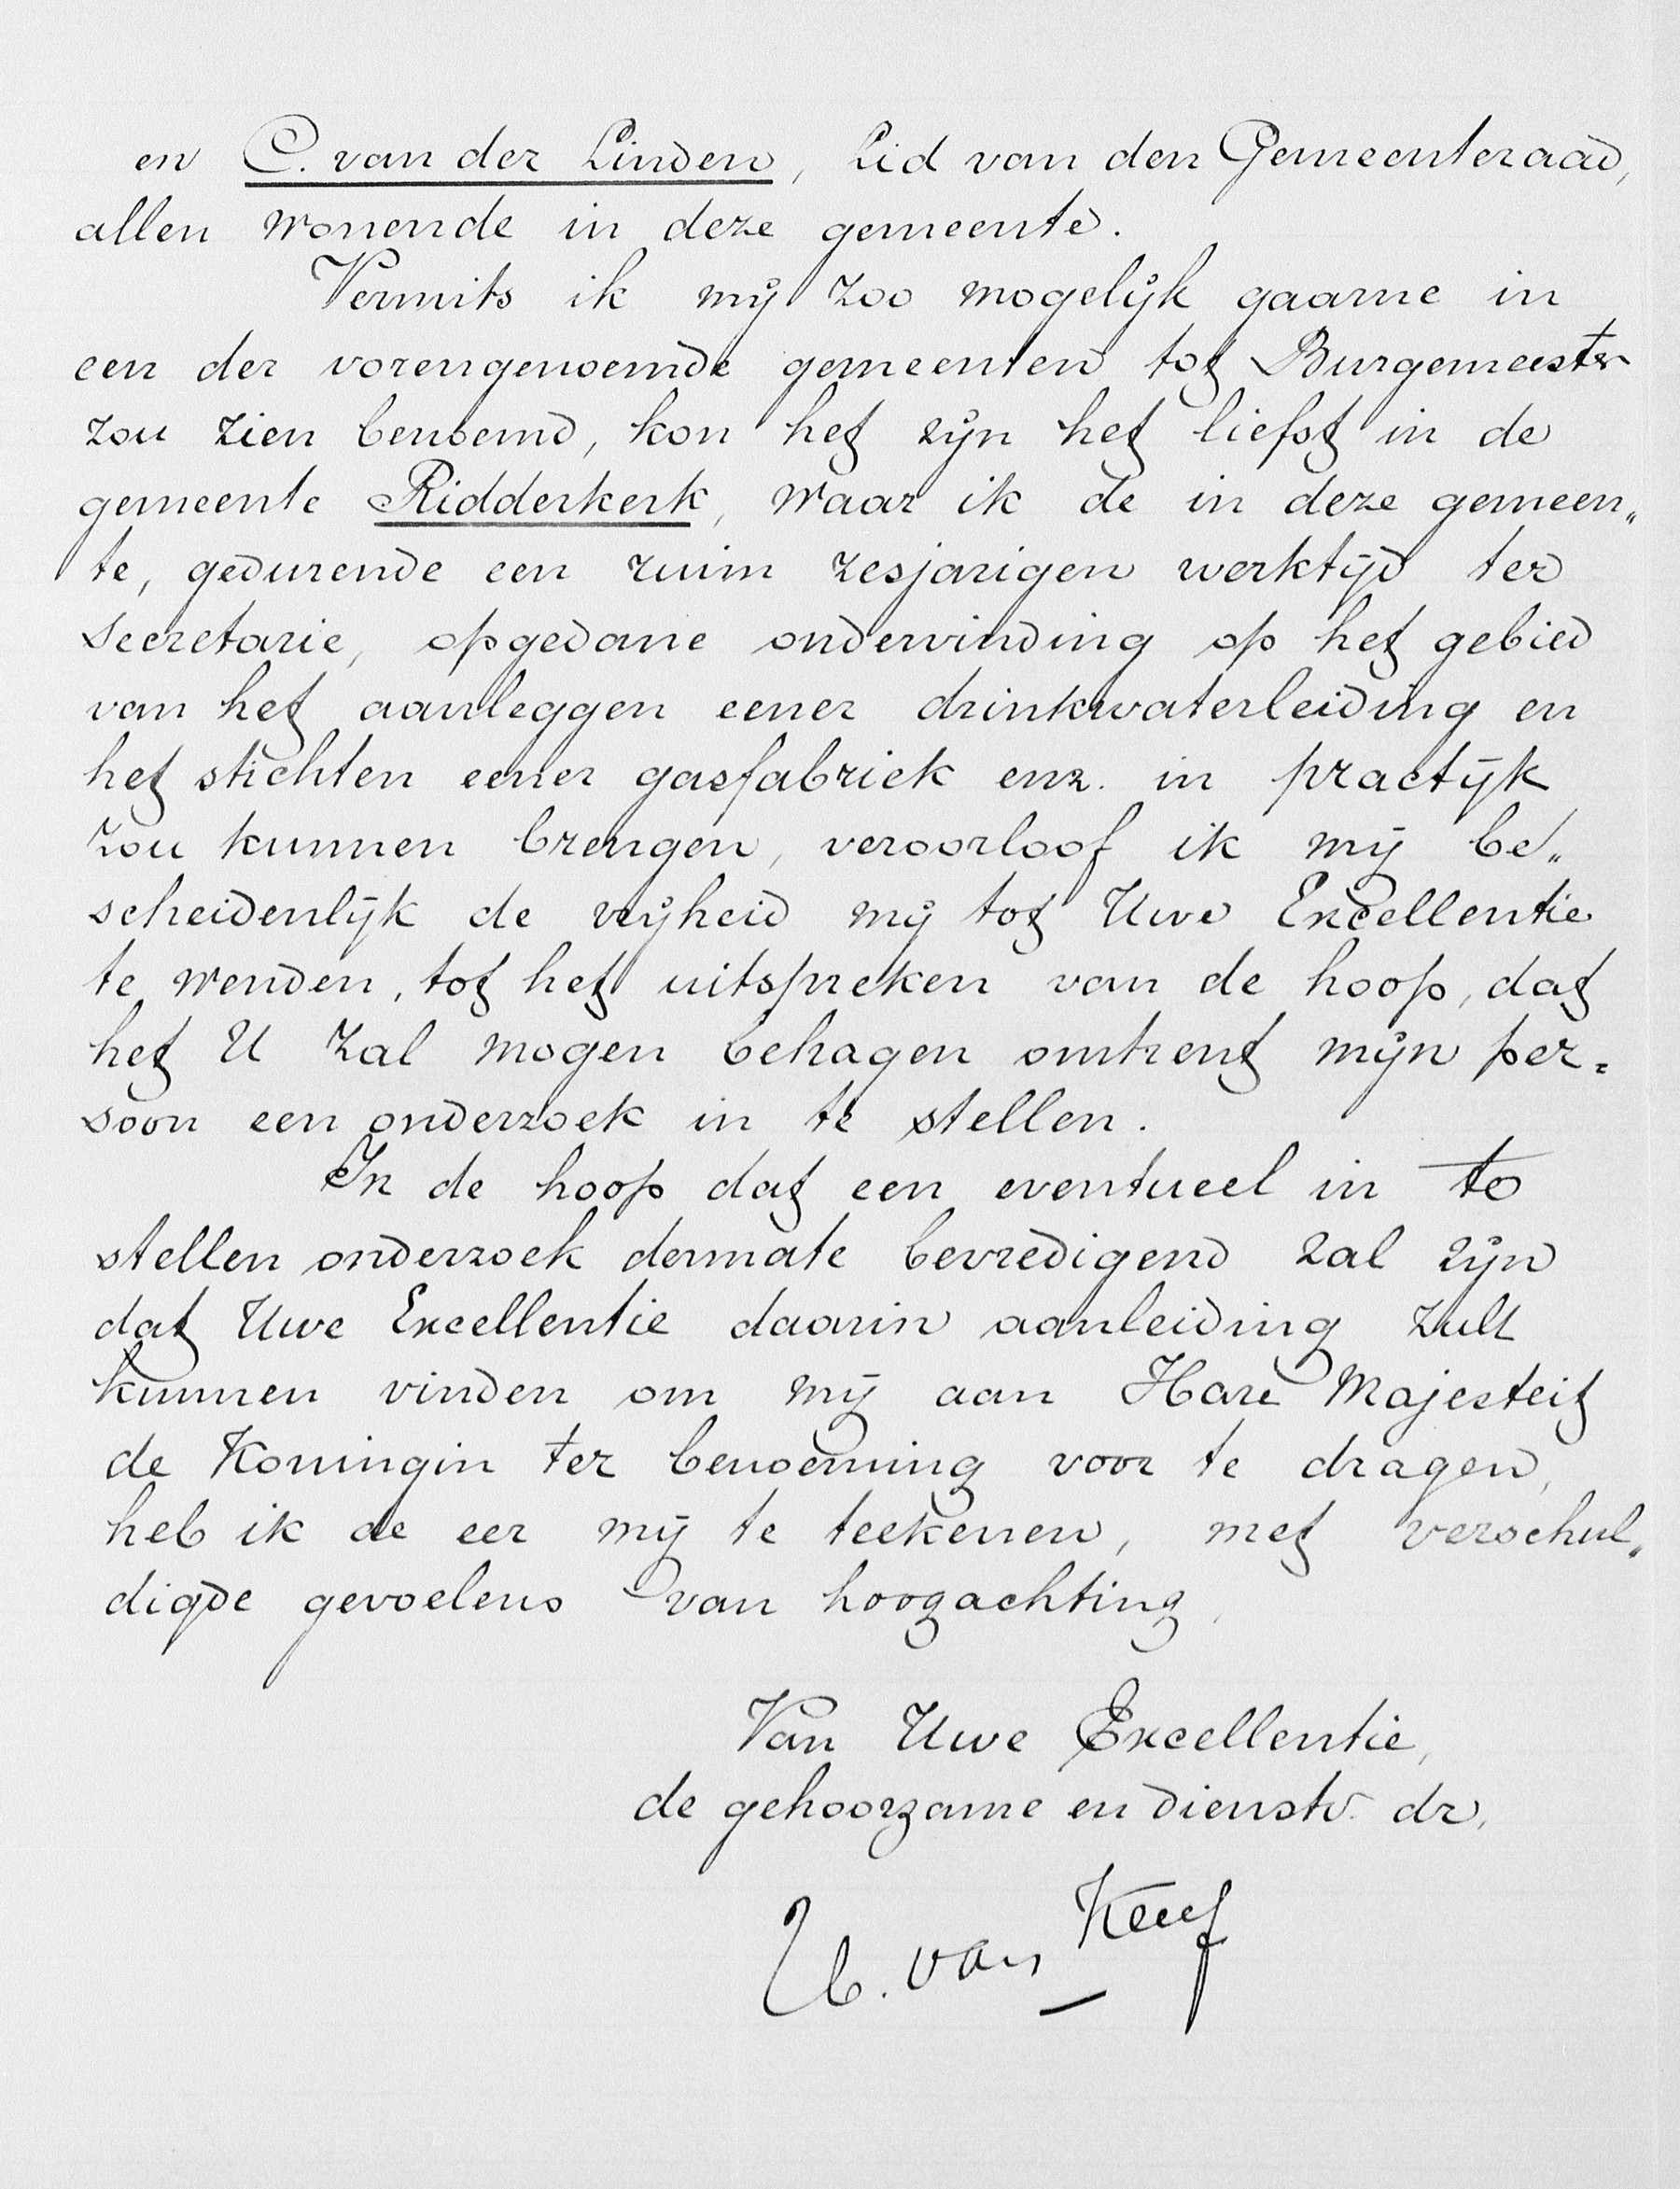 en C. van der Linden, Lid van den Gemeenteraad,
allen wonende in deze gemeente.
Vermits ik mij zoo mogelijk gaarne in
een der vorengenoemde gemeenten tot Burgemeester
zou zien benoemd, kon het zijn het liefst in de
gemeente Ridderkerk, waar ik de in deze gemeen„
te, gedurende een ruim zesjarigen werktijd ter
secretarie, opgedane ondervinding op het gebied
van het aanleggen eener drinkwaterleiding en
het stichten eener gasfabriek enz. in practijk
zou kunnen brengen, veroorloof ik mij be„
scheidenlijk de vrijheid mij tot Uwe Excellentie
te wenden, tot het uitspreken van de hoop, dat
het U zal mogen behagen omtrent mijn per=
soon een onderzoek in te stellen.
In de hoop dat een eventueel in te
stellen onderzoek dermate bevredigend zal zijn
dat Uwe Excellentie daarin aanleiding zult
kunnen vinden om mij aan Hare Majesteit
de Koningin ter benoeming voor te dragen,
heb ik de eer mij te teekenen, met verschul„
digde gevoelens van hoogachting,
Van Uwe Excellentie,
de gehoorzame en dienstv. dr,
van